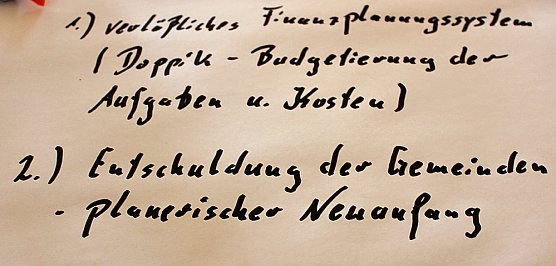 1.) verläßliches Finanzplanungssystem
(Doppik - Budgetierung der
Aufgaben u. Kosten)
2.) Entschuldung der Gemeinden
- planerischer Neuanfang